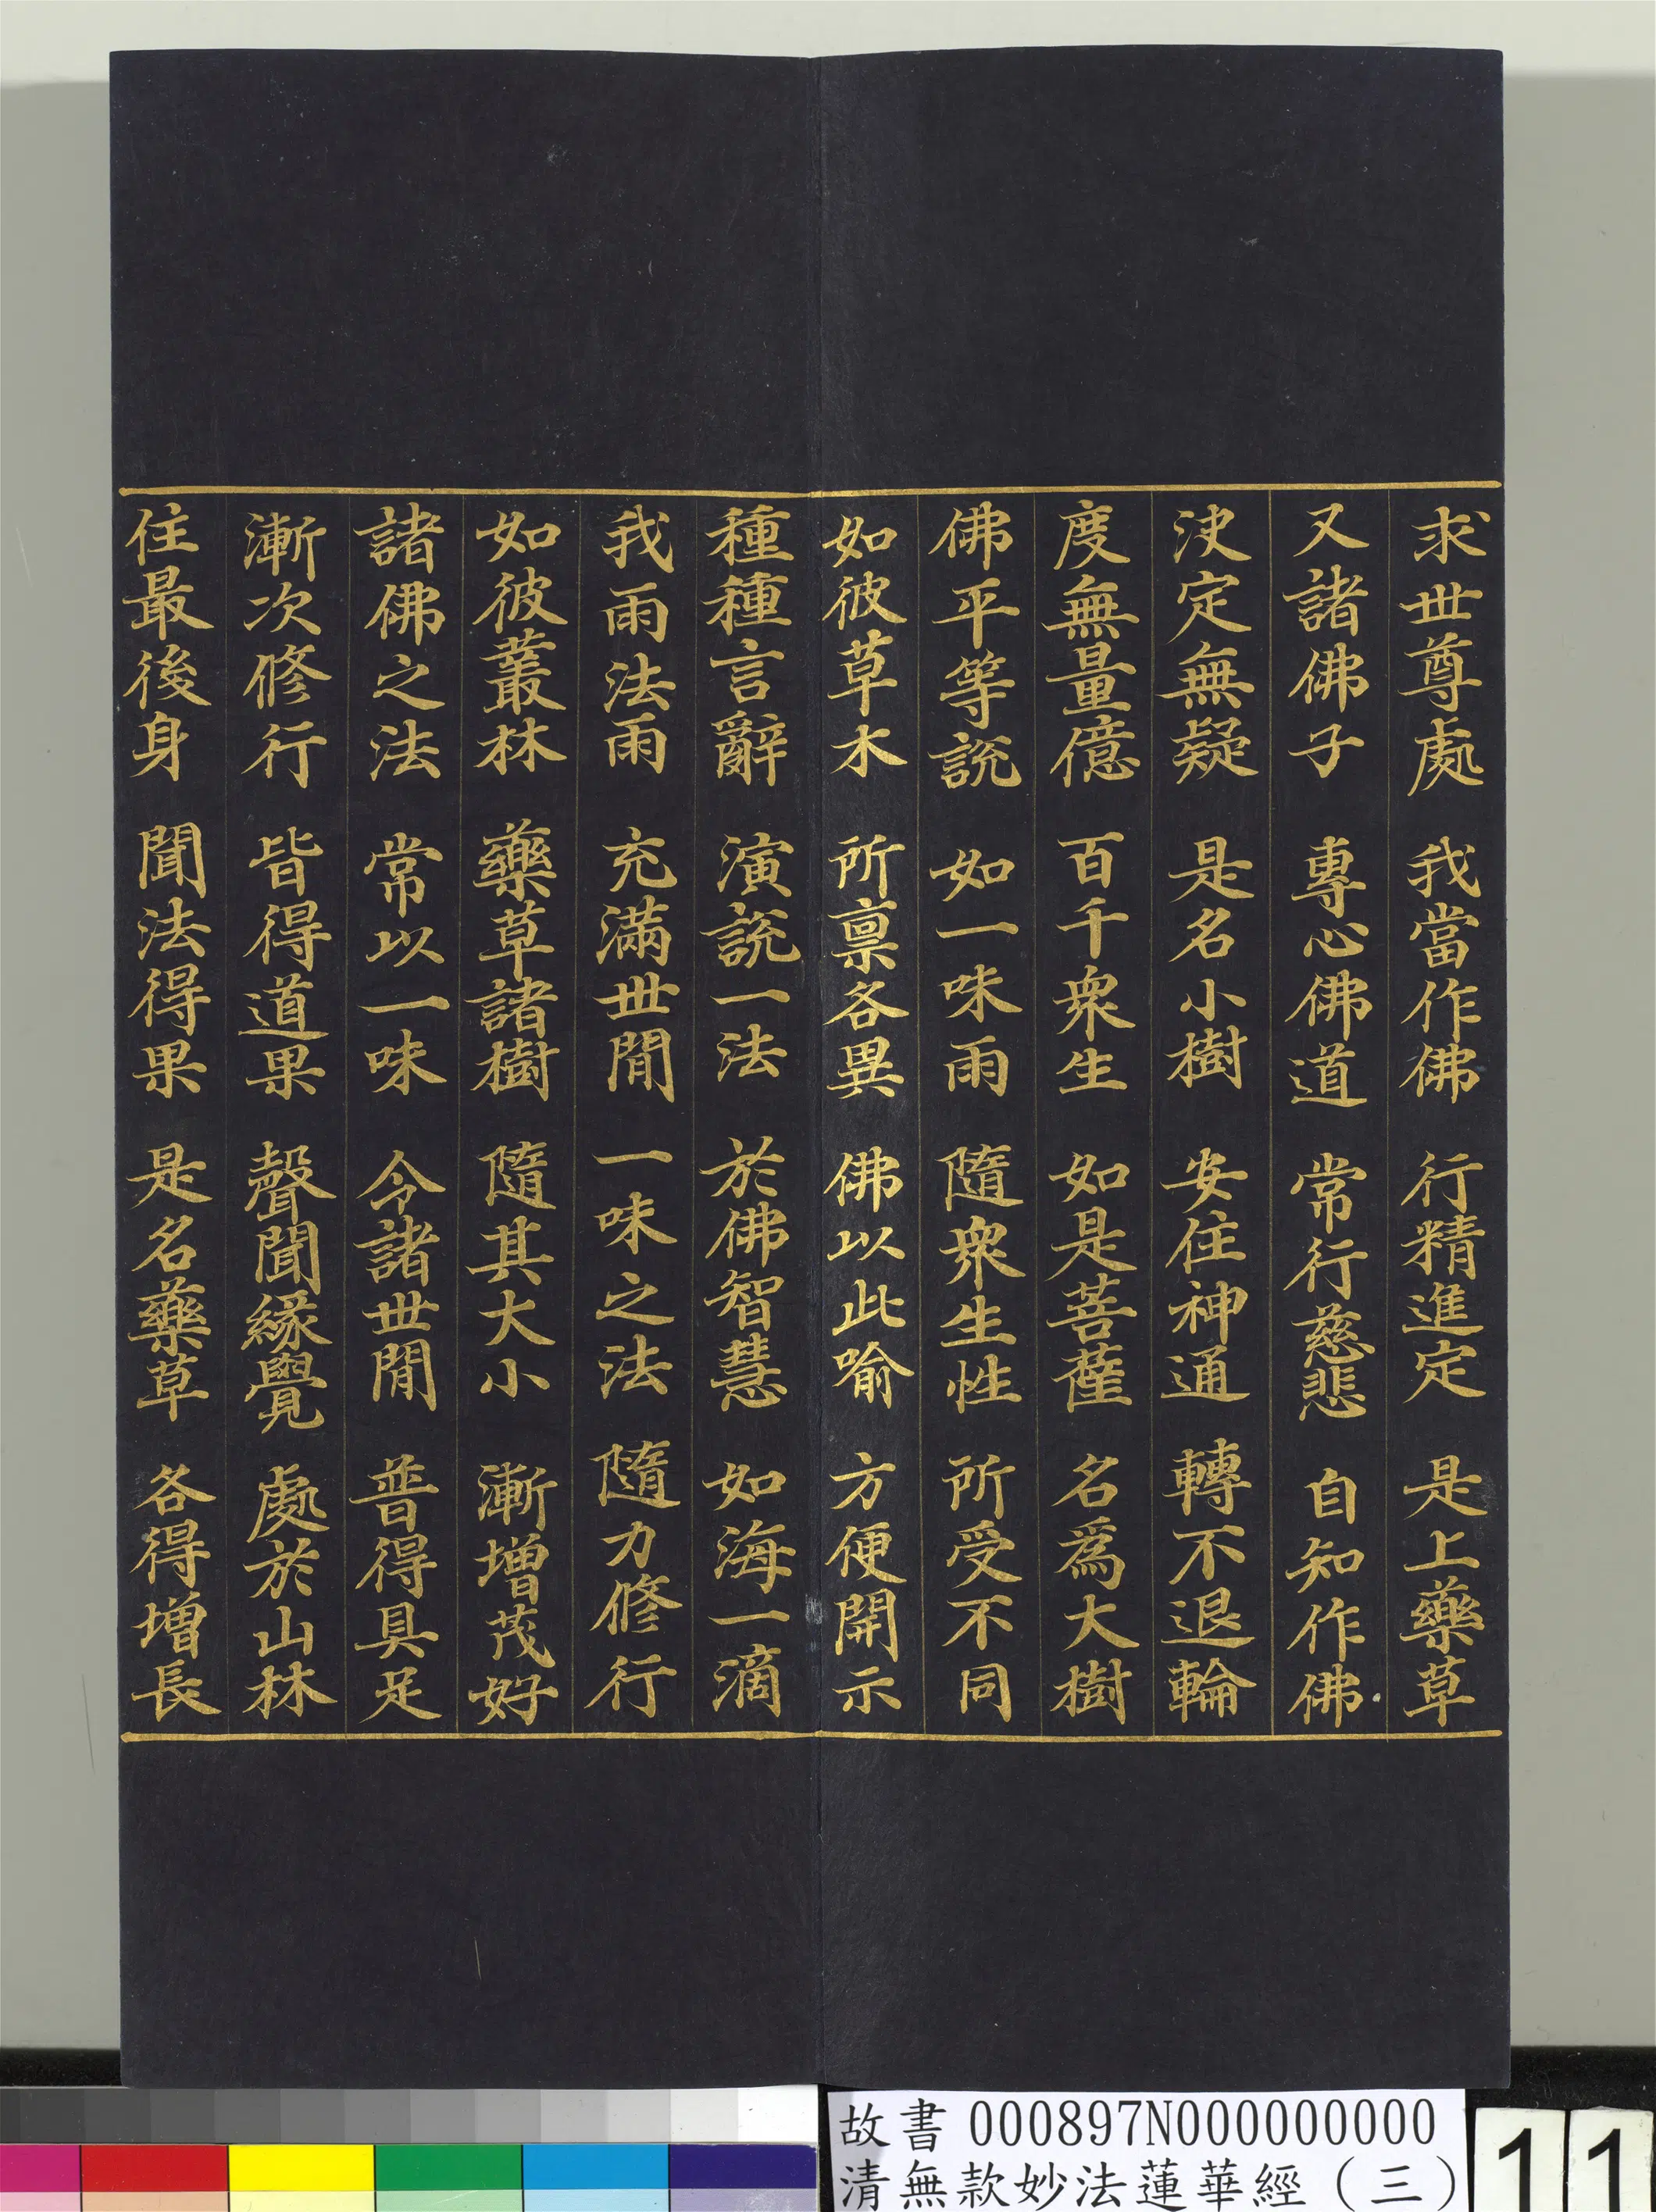 求世尊處 我當作佛 行精進定 是上藥草
又諸佛子 專心佛道 常行慈悲 自知作佛
決定無疑 是名小樹 安住神通 轉不退輪
度無量億 百千衆生 如是菩薩 名爲大樹
佛平等說 如一味雨 隨衆生性 所受不同
如彼草木 所稟各異 佛以此喻 方便開示
種種言辭 演說一法 於佛智慧 如海一滴
我雨法雨 充滿世間 一味之法 隨力修行
如彼叢林 藥草諸樹 隨其大小 漸增茂好
諸佛之法 常以一味 令諸世間 普得具足
漸次修行 皆得道果 聲聞緣覺 處於山林
住最後身 聞法得果 是名藥草 各得增長
故書 000897N000000000
清無款妙法蓮華經(三)
11